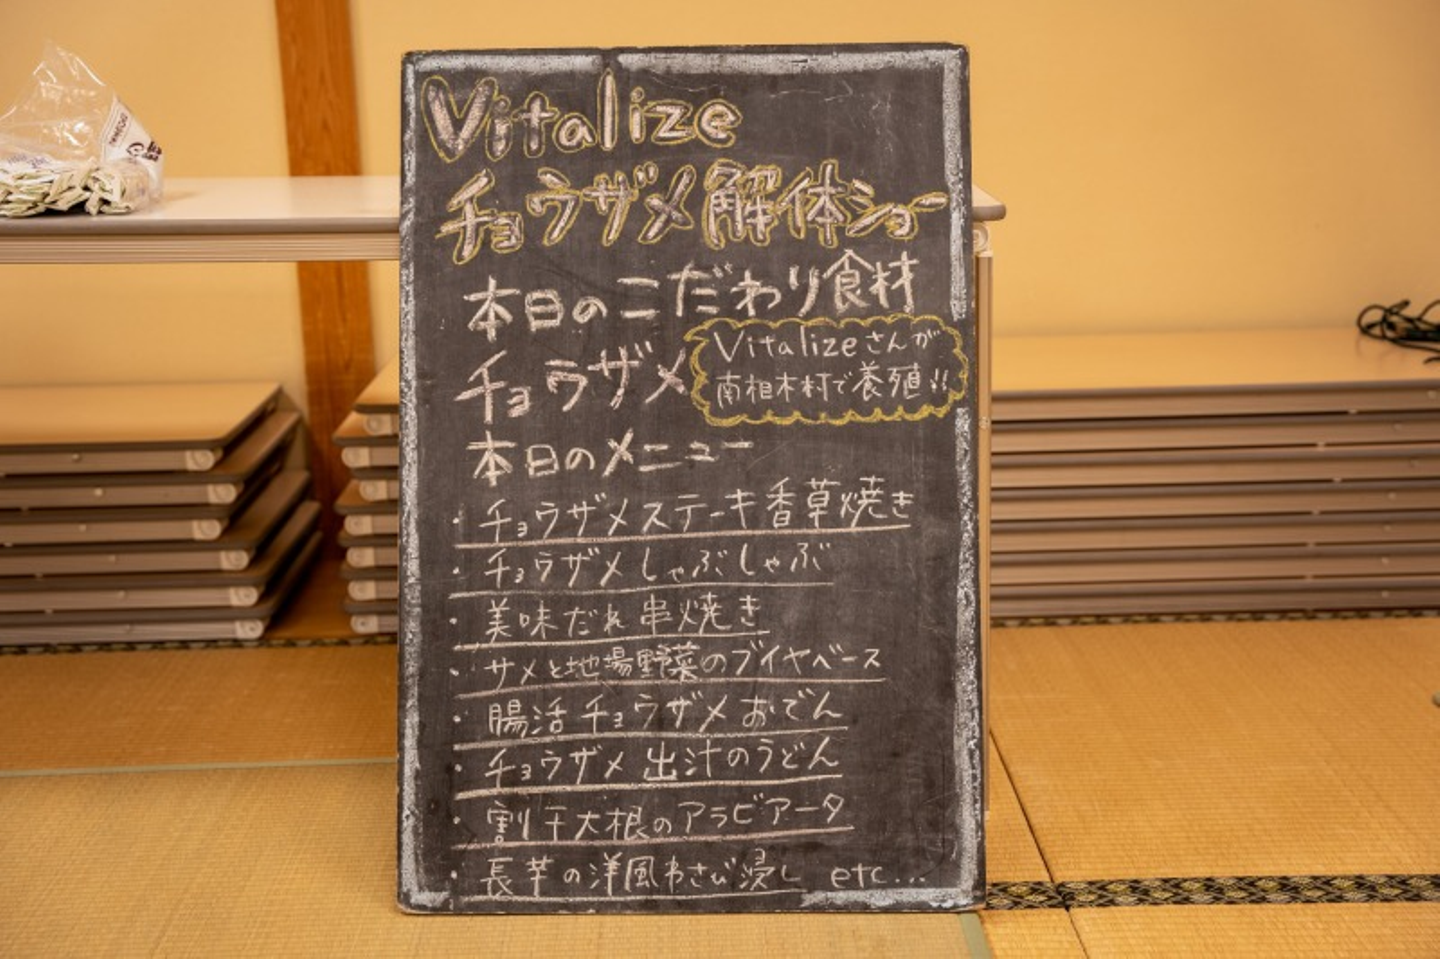 Vitalize
チョウザメ解体ショー
本日のこだわり食材
チョウザメ
Vitalizeさんが
南相木村で養殖!!
本日のメニュー
・チョウザメステーキ香草焼き
・チョウザメしゃぶしゃぶ
・美味だれ串焼き
・サメと地場野菜のブイヤベース
・腸活チョウザメおでん
・チョウザメ出汁のうどん
・割干大根のアラビアータ
・長芋の洋風わさび浸し etc...